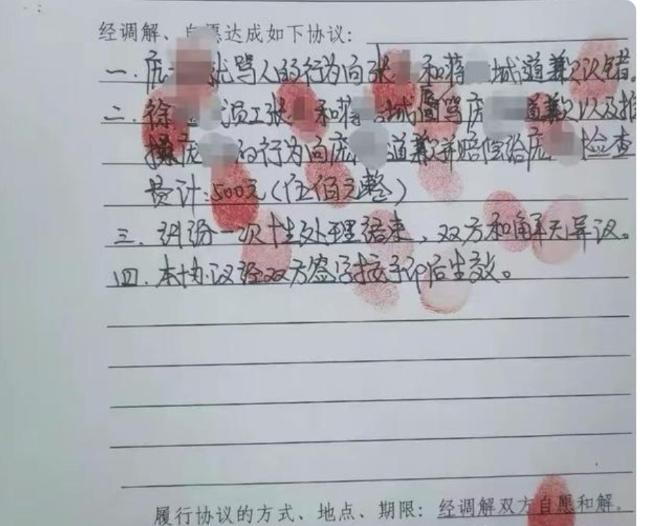 经调解、自愿达成如下协议：
一、庞就骂人的行为向张和蒋城道歉认错。
二、徐员工张和蒋城因骂庞道歉以及推
搡庞的行为向庞道歉并赔偿给庞检查
费计：500元（伍佰元整）
三、纠纷一次性处理结束，双方和解无异议。
四、本协议经双方签字按手印后生效。
履行协议的方式、地点、期限：经调解双方自愿和解。